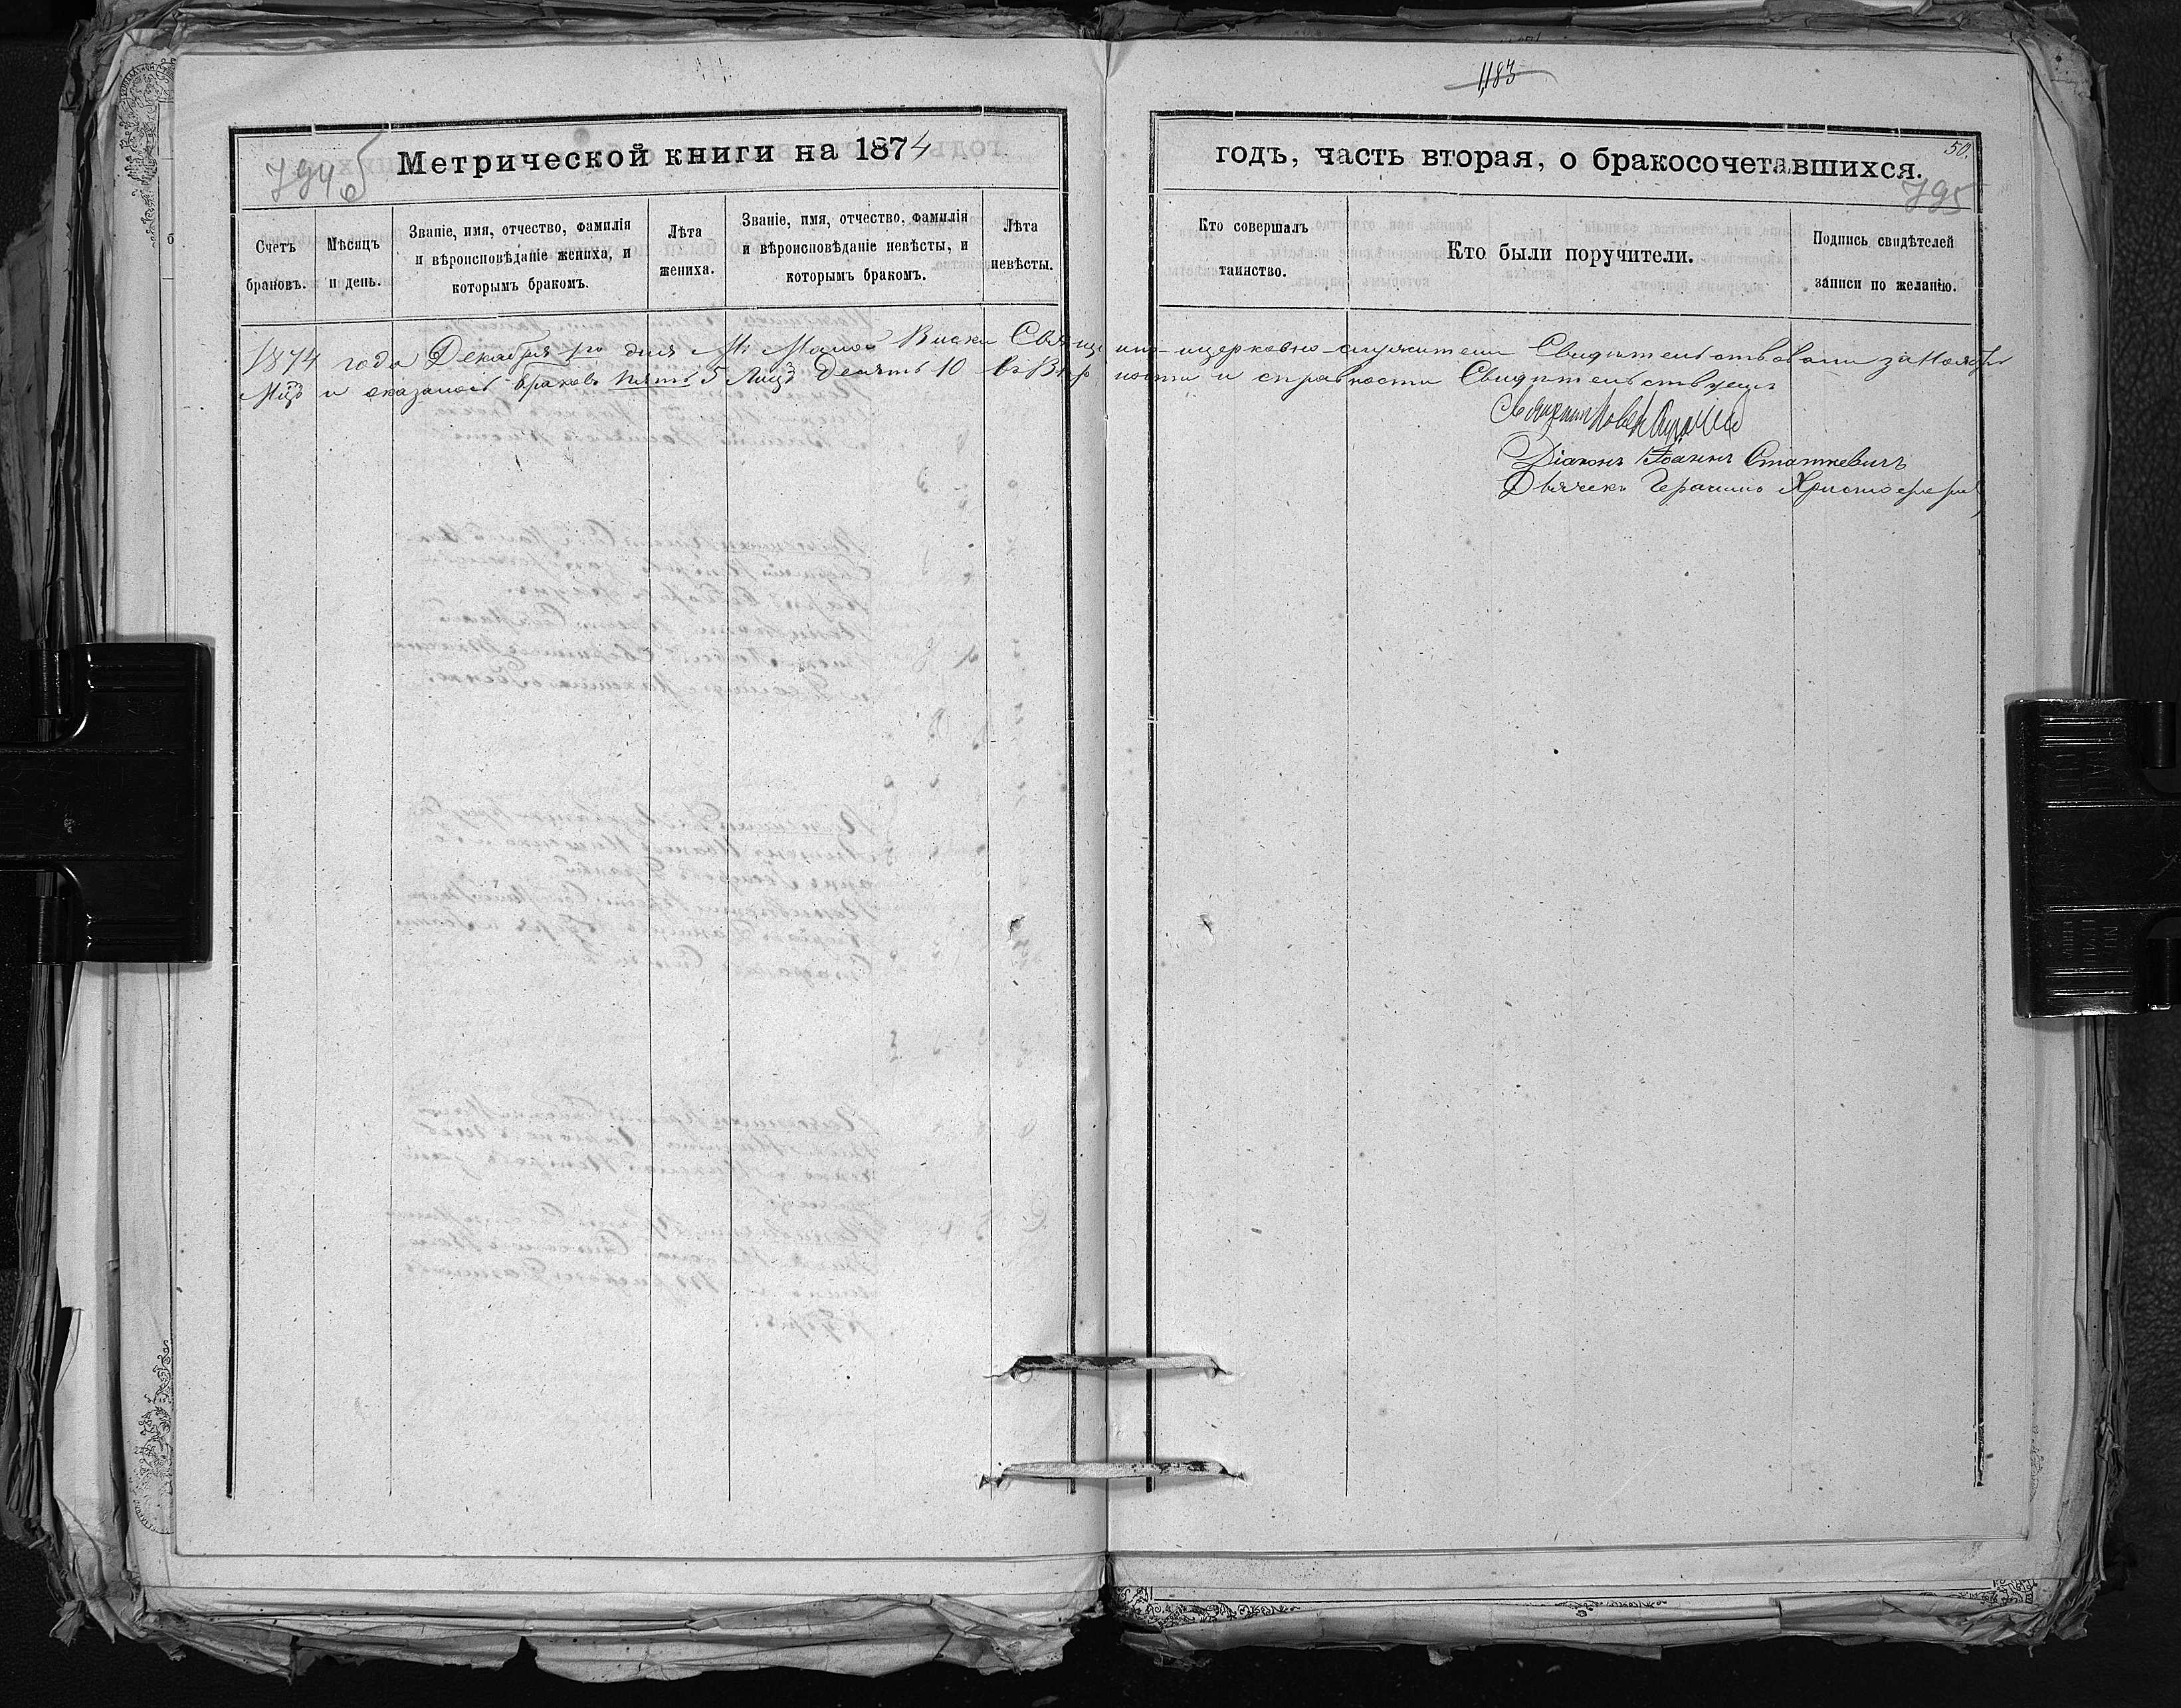 1183
794 об
Метрической книги на 1874
годъ, часть вторая, о бракосочетавшихся.
50.
795
Счетъ браковъ.
Мѣсяцъ и день.
Званіе, имя, отчество, фамилія и вѣроисповѣданіе жениха, и которымъ бракомъ.
Лѣта жениха.
Званіе, имя, отчество, фамилія и вѣроисповѣданіе невѣсты, и которымъ бракомъ.
Лѣта невѣсты.
Кто совершалъ таинство.
Кто были поручители.
Подпись свидѣтелей записи по желанію.
1874 года Декабря 1го дня М: Малой Виски Священно-церковно-служители Свидѣтельствовали за Ноябрь
Мцъ и оказалось браковъ пять 5 Лицъ Десять 10 въ Вѣрности и справности Свидѣтельствуемъ
Священникъ
Діаконъ Іоаннъ Статкевичъ
Дьячекъ Герасимъ